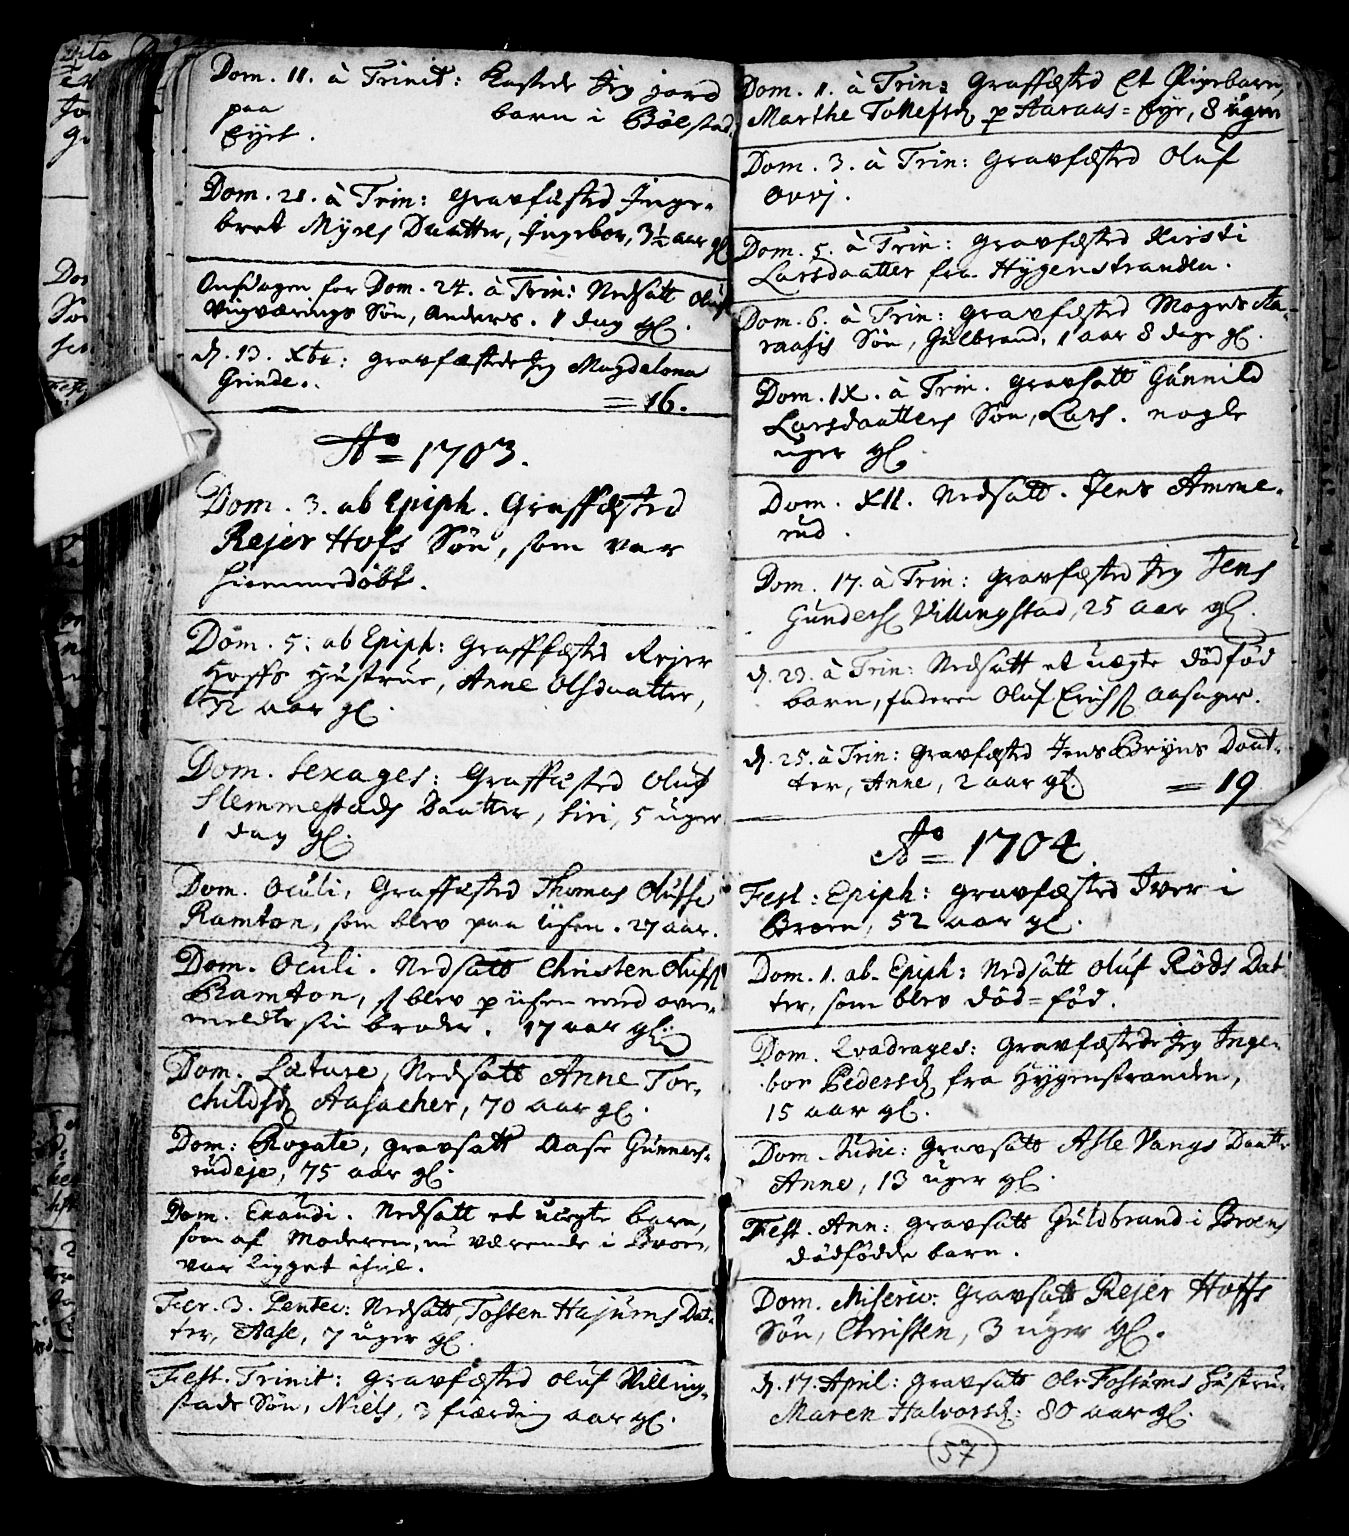 Dom. 11. à Trinit: Kastede Jeg jord
paa barn i Bölstad
Eyet.
Dom. 21. à Trin: Gravfæsted Inge-
bret Myres Daatter, Ingebor, 3½ aar gl.
Onsdagen for Dom. 24. à Trin: Nedsatt Oluf
Søn, Anders. 1 dag gl.
d. 13. Xbr: gravfæstede Jeg Magdalena
Grinde.
= 16.
Ao = 1703.
Dom. 3. ab Epiph. Graffæsted
Rejer Hofs Søn, som var
hiemmedøbt.
Dom. 5: ab Epiph: Graffæsted Rejer
Hoffs Hustrue, Anne Olsdaatter,
aar gl.
Dom. Sexages: Graffæsted Oluf
Slemmestads Daatter, Siri, 5 uger
1 dag gl.
Dom. Oculi, Graffæsted Thomas Olufse
Ramton, som blev paa Iisen. 27 aar.
Dom. Oculi. Nedsatt Christen Olufs
Ramton, s blev p iisen med oven-
meldte sin broder. 17 aar gl.
Dom. Lætare, Nedsatt Anne Tor-
childsd Aasacher, 70 aar gl.
Dom: Rogate, gravsatt Aase Gunners-
rudeje, 75 aar gl.
Dom. Exaudi. Nedsatt et uægte barn,
som af Moderen, nu værende i Broen,
var ligget ihiel.
Fer. 3. Pentec: Nedsatt, Tosten Hajums Dat-
ter, Aase, 7 uger gl.
Fest. Trinit: gravfæsted Oluf Villing-
stads Søn, Niels, 3 fierding aar gl.
Dom. 1. à Trin: Graffæsted Et Pigebarn,
Marthe Tollefsd, p Aaraas-Eye, 8 uger
Dom. 3. à Trin: Gravfæsted Oluf
Ovej.
Dom. 5. à Trin: Gravfæsted Kirsti
Larsdaatter fra Hygenstranden.
Dom. 6. à Trin: gravfæsted Mogns Aa-
raasis Søn, Gulbrand, 1 aar 8 dage gl.
Dom. IX. à Trin. gravsatt Gunnild
Larsdaatters Søn, Lars. nogle
uger gl.
Dom. XII. Nedsatt. Jens Amme-
rud.
Dom. 17. à Trin: Gravfæsted Jeg Jens
Gunders Villingstad, 25 aar gl.
d. 23. à Trin: Nedsatt et uægte dödföd
barn, faderen Oluf Erichs Aasager.
d. 25. à Trin: Gravfæsted Jens Bryns Daat-
ter, Anne, 2 aar gl.
= 19
Ao = 1704.
Fest: Epiph: gravfæsted Iver i
Broen, 52 aar gl.
Dom. 1. ab. Epiph: Nedsatt Oluf Röds Dat-
ter, som blev död-föd.
Dom. Qvadrages: Gravfæstede Jeg Inge-
bor Pedersd, fra Hygenstranden,
15 aar gl.
Dom. Judic: Gravsatt Asle Vangs Daatt
Anne, 13 uger gl.
Fest. Ann: gravsatt Guldbrand i Broens
dödfödde barn.
Dom. Miseric: Gravsatt Rejer Hoffs
Søn, Christen, 3 uger gl.
d. 17. April: Gravsatt Ole Fossums Hustru,
Maren Halvorsd: 80 aar gl.
57